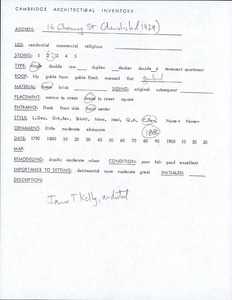 CAMBRIDGE ARCHITECTURAL INVENTORY
ADDRESS: 16 St (demolished 1929)
USE: residential commercial religious
STORIES: 1 2 3 4 5
TYPE: double row duplex decker double d tenement apartment
ROOF: hip gable front gable flank mansard flat gambrel
MATERIAL: brick SIDING: original subsequent
PLACEMENT: narrow to street broad to street square
ENTRANCE: flank front side center
STYLE: L.Geo. Grk.Rev. Brckt. Mans. Med. Q.A. C.Rev. None+ None-
ORNAMENT: little moderate elaborate
DATE: 1790 1800 10 20 30 40 50 60 70 80 90 1900 10 20 30
MAP:
REMODELING: drastic moderate minor CONDITION: poor fair good excellent
IMPORTANCE TO SETTING: detrimental none moderate great INITIALED:
DESCRIPTION:
James T Kelly, architect